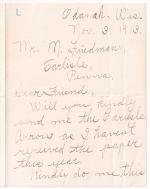 Odanah, Wis.
Nov. 3. 1913.
Mr. M. Friedman,
Carlisle,
Penna.
Dear Friend,
Will you kindly
send me the Carlisle
Arrow as I haven't
received the paper
this year.
Kindly do me this